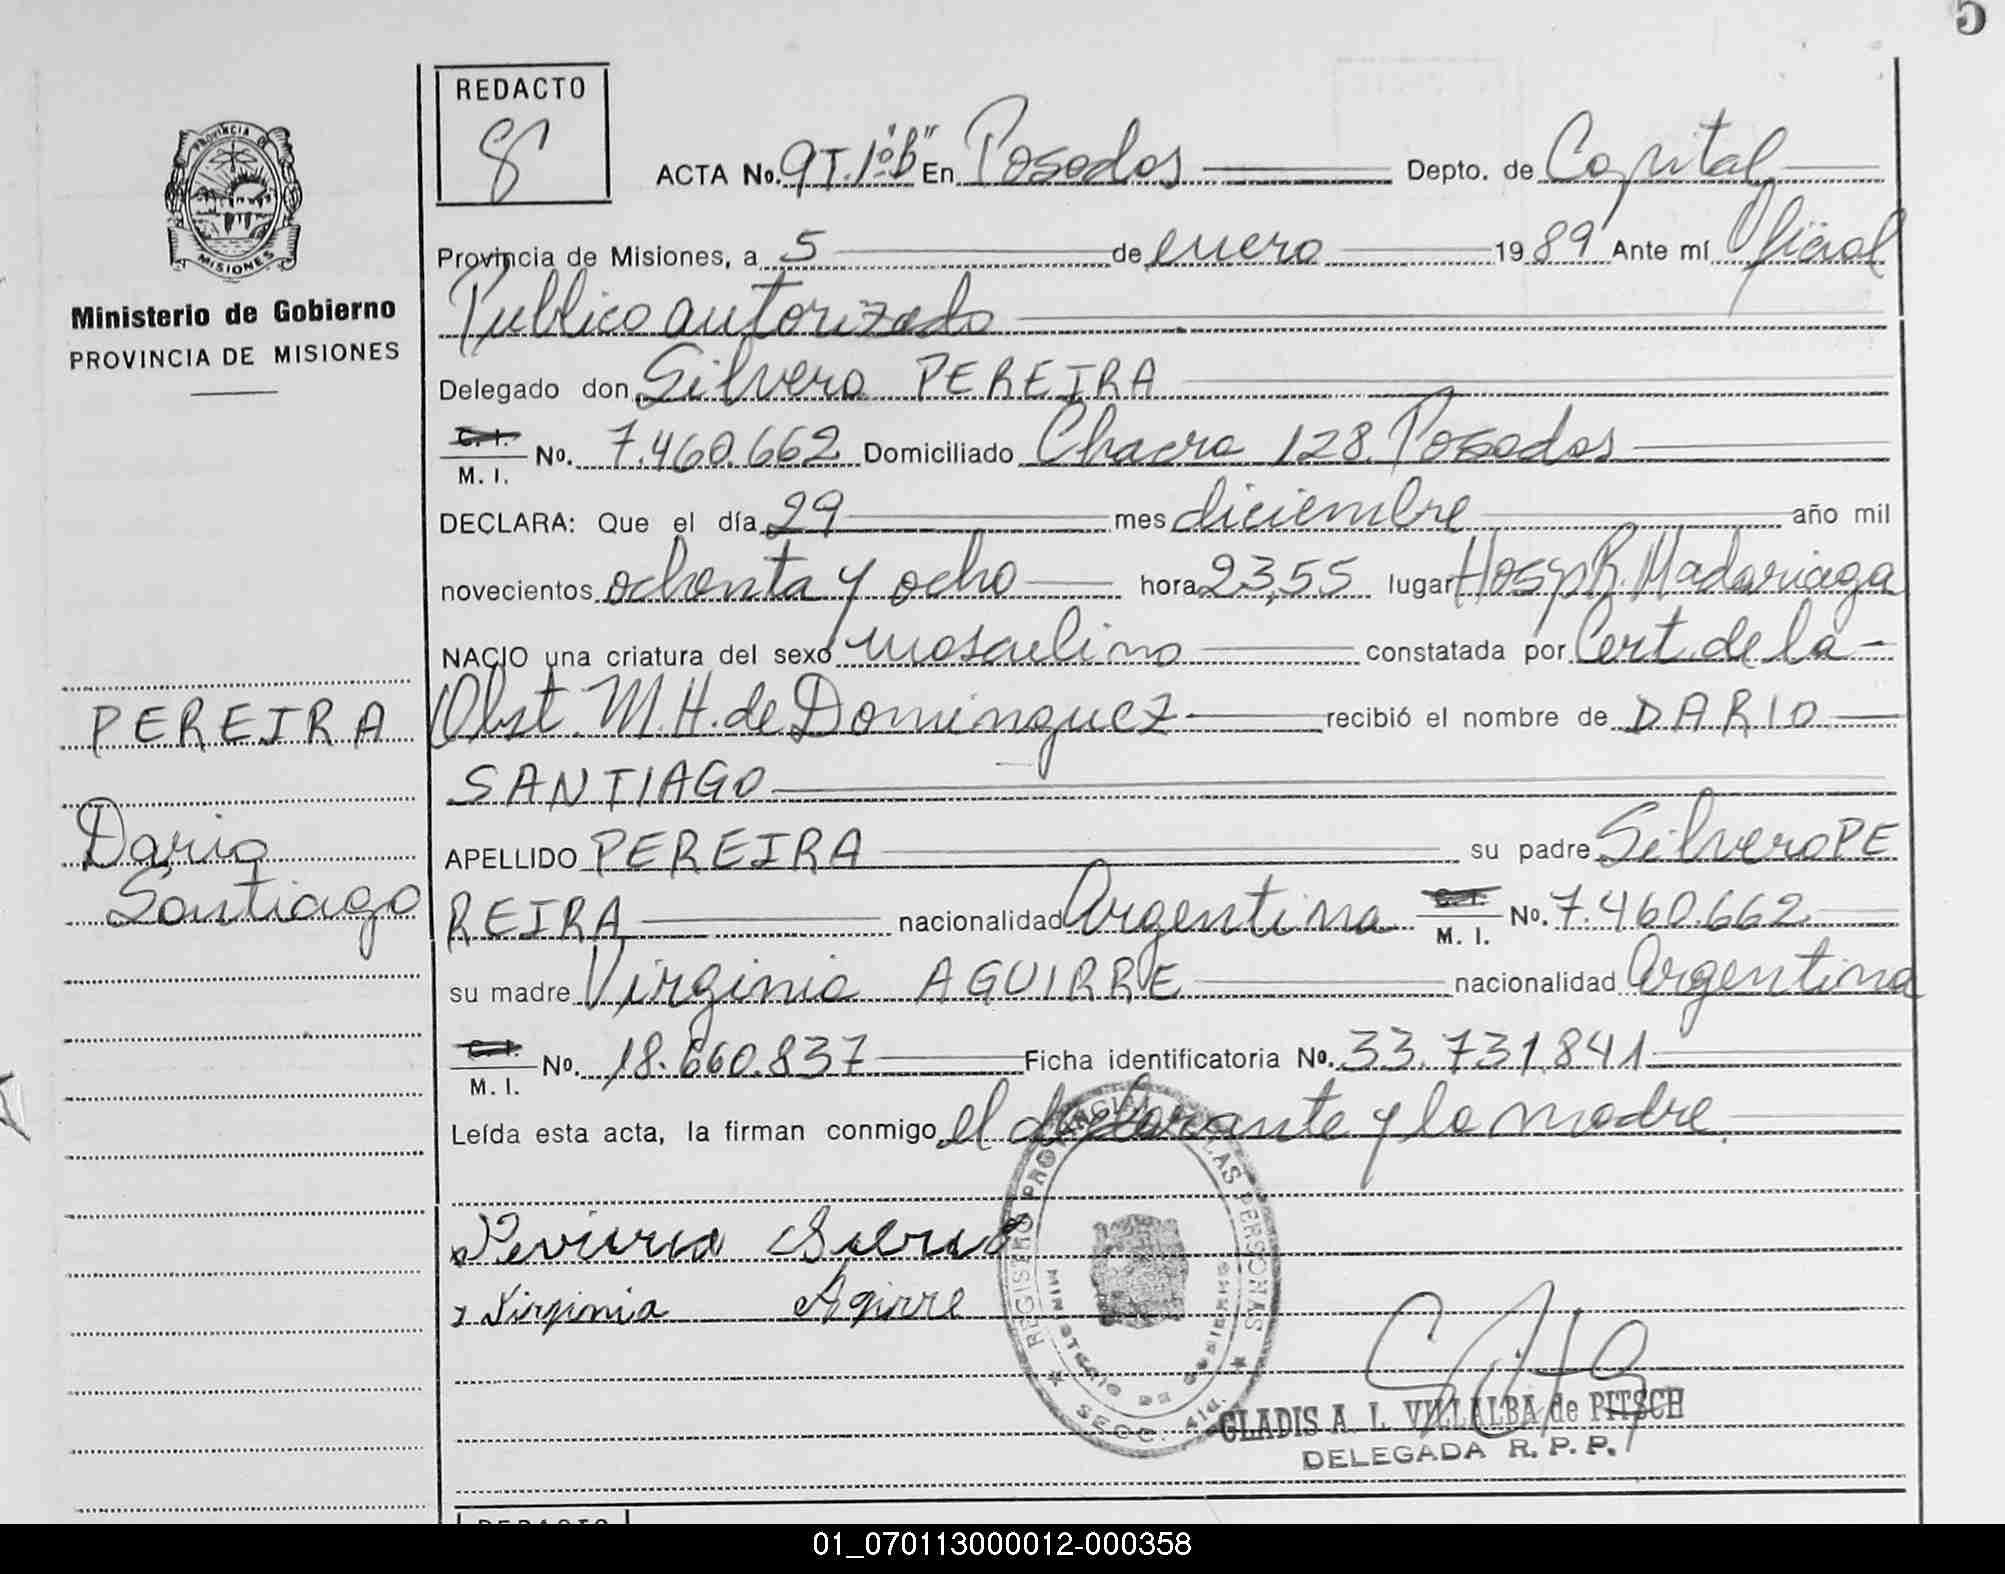 5
REDACTO
PROVINCIA DE
MISIONES
Ministerio de Gobierno
PROVINCIA DE MISIONES
ACTA No. 9 T. 1º "B" En Posadas Depto. de Capital
Provincia de Misiones, a 5 de enero 1989 Ante mí Oficial
Publico autorizado
Delegado don Silvero PEREIRA
C. I.
M. I. No. 7.460.662 Domiciliado Chacra 128. Posadas
DECLARA: Que el día 29 mes diciembre año mil
novecientos ochenta y ocho hora 23,55 lugar Hosp. R. Madariaga
NACIO una criatura del sexo masculino constatada por Cert. de la
Obst. M.H. de Dominguez recibió el nombre de DARIO
SANTIAGO
APELLIDO PEREIRA su padre Silvero PE
REIRA nacionalidad Argentina C. I. M. I. No. 7.460.662
su madre Virginia AGUIRRE nacionalidad Argentina
C. I.
M. I. No. 18.660.837 Ficha identificatoria No. 33.731.841
Leída esta acta, la firman conmigo el declarante y la madre.
PEREIRA
Dario
Santiago
Virginia Agirre
REGISTRO PROVINCIAL LAS PERSONAS
MINISTERIO DE GOBIERNO
SECC. 4ta.
GLADIS A. I. VILLALBA de PITSCH
DELEGADA R. P. P.
REDACTO
01_070113000012-000358